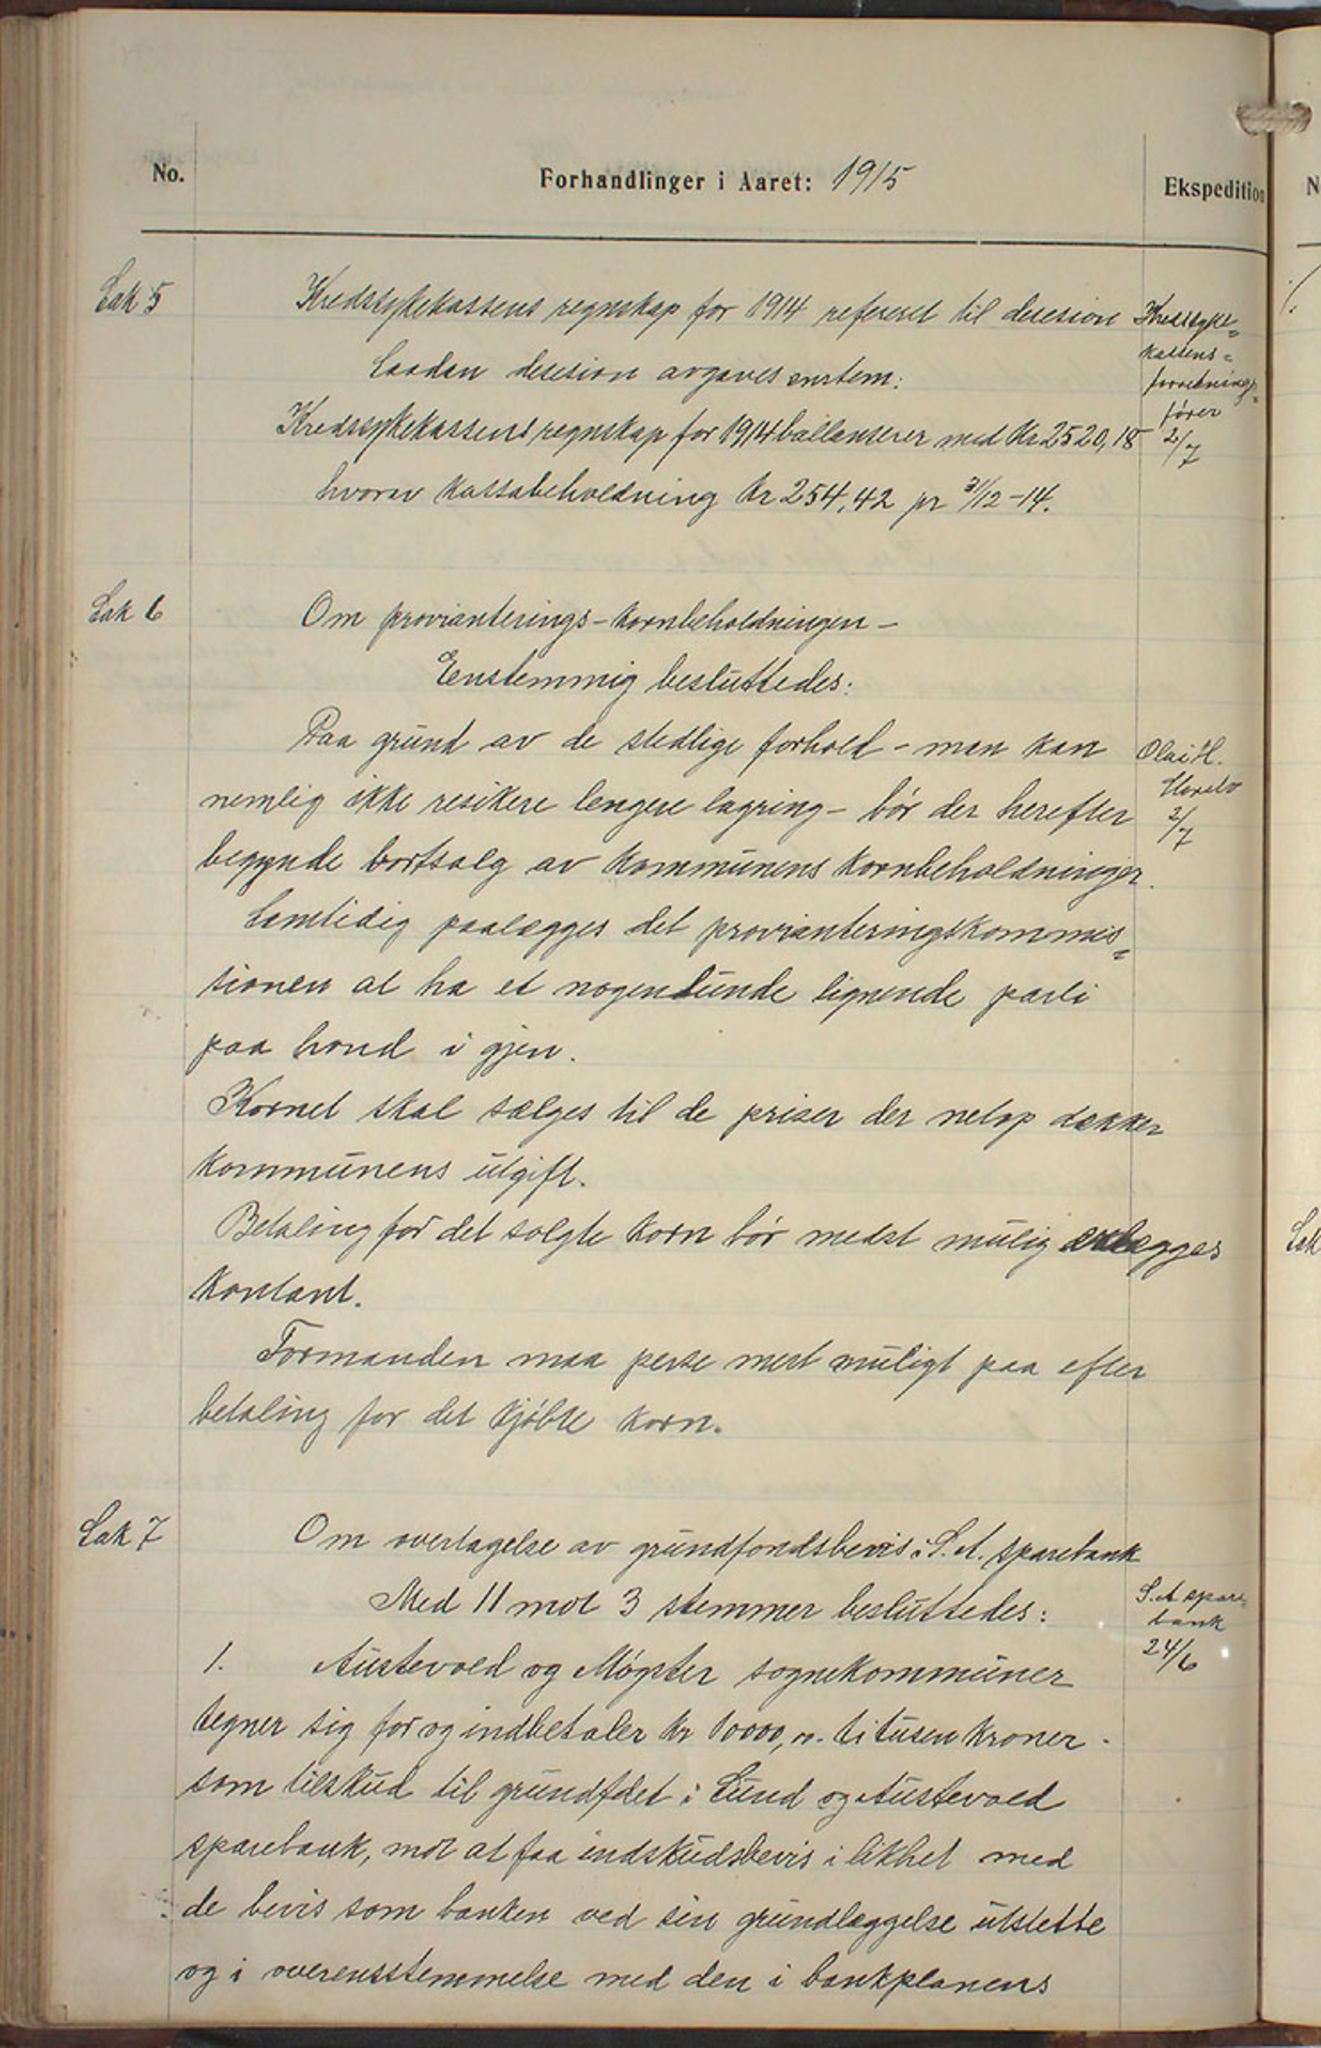 No.
Forhandlinger i Aaret: 1915
Ekspedition
Sak 5
Kredssykekassens regnskap for 1914 refereret til desesion
Saadan desesion avgaves enstem:
Kredssykekassens regnskap for 1914 ballanserer med Kr 2520,18
hvorav kassabeholdning Kr 254,42 pr 31/12-14.
Kredssyke=
kassens=
forretnings=
fører
2/7
Sak 6
Om provianterings-kornbeholdningen-
Eenstemmig besluttedes:
Paa grund av de stedlige forhold - man kan
nemlig ikke resikere lengere lagring - bør der herefter
begynde bortsalg av kommunens kornbeholdninger.
Samtidig paalægges det provianteringskommis=
sionen at ha et nogenlunde lignende parti
paa hand i gjen.
Kornet skal sælges til de priser der netop dækker
kommunens utgift.
Betaling for det solgte korn bør medst mulig erlægges
kontant.
Formanden maa perse mest muligt paa efter
betaling for det kjøbte korn.
Olai H.
2/7
Sak 7
Om overtagelse av grundfondsbevis i S. A. sparebank
Med 11 mot 3 stemmer besluttedes:
1. Austevold og Møgster sognekommuner
tegner sig for og indbetaler Kr 10000,00. titusen kroner.
som tilskud til grundfdet i Sund og Austevold
sparebank, mot at faa indskudsbevis i likhet med
de bevis som banken ved sin grundlæggelse utstette
og i overensstemmelse med den i bankplanens
S. A spare=
bank
24/6
N
1.
Sak